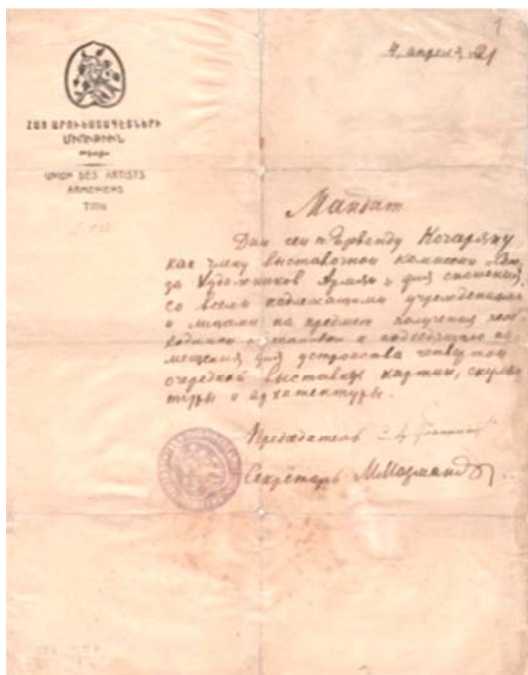 1
4 апреля 21
ՀԱՅ ԱՐՈՒԵՍՏԱԳԷՏՆԵՐԻ
ՄԻՈՒԹԻՒՆ
UNION DES ARTISTS
ARMENIENS
Мандат
Дан сей т. Ерванду Кочаряну
как члену выставочной комиссии
за Художников Армян и для сношений
со всеми надлежащими учреждениями
и лицами на предмет получения
и подходящего по-
мещения для устройства четвертой
очередной выставки картин, скульп
туры и архитектуры.
Председатель
Секретарь